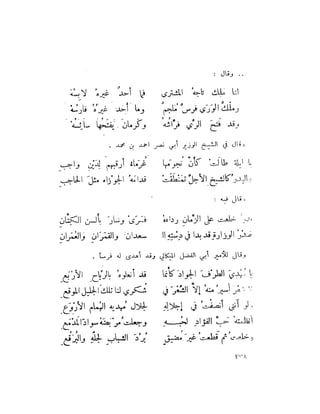 .. وقال :
لنا ملك تاجه المشتري فما أحد غيره لابسه
وملك الوزير فرس ملجم وما أحد غيره فارسه
وقد فتح الري فراشه وكرمان يفتحها سائسه
وقال في الشيخ الوزير أبي نصر احمد بن محمد .
يا ليلة طالت كأن نجومها غرماء أرقبهم لدين واجب
والبدر كالشيخ الأجل تمنطقت قدامه الجوزاء مثل الحاجب
وقال فيه :
خلعت على الزمان رداءه فسرى وسار بألسن
صدر الوزارة قد بدا في دسته السعدان والقمران والعمران
وقال للأمير أبي الفضل الميكالي وقد أهدى له فرسا .
يا مهدي الطرف الجواد كأنما قد أنعلوه بالرياح الأربع
أسير منه إلا الشعر في شكري لنا تلك الجليل الموقع
ولو أنني أنصفت في إجلاله لجلال مهديه الهمام الأروع
أقضمته حب الفؤاد لحبه وجعلت مربطه سواد المدمع
وخلعت ثم قطعت غير مضيق برد الشباب لجله والبرقع